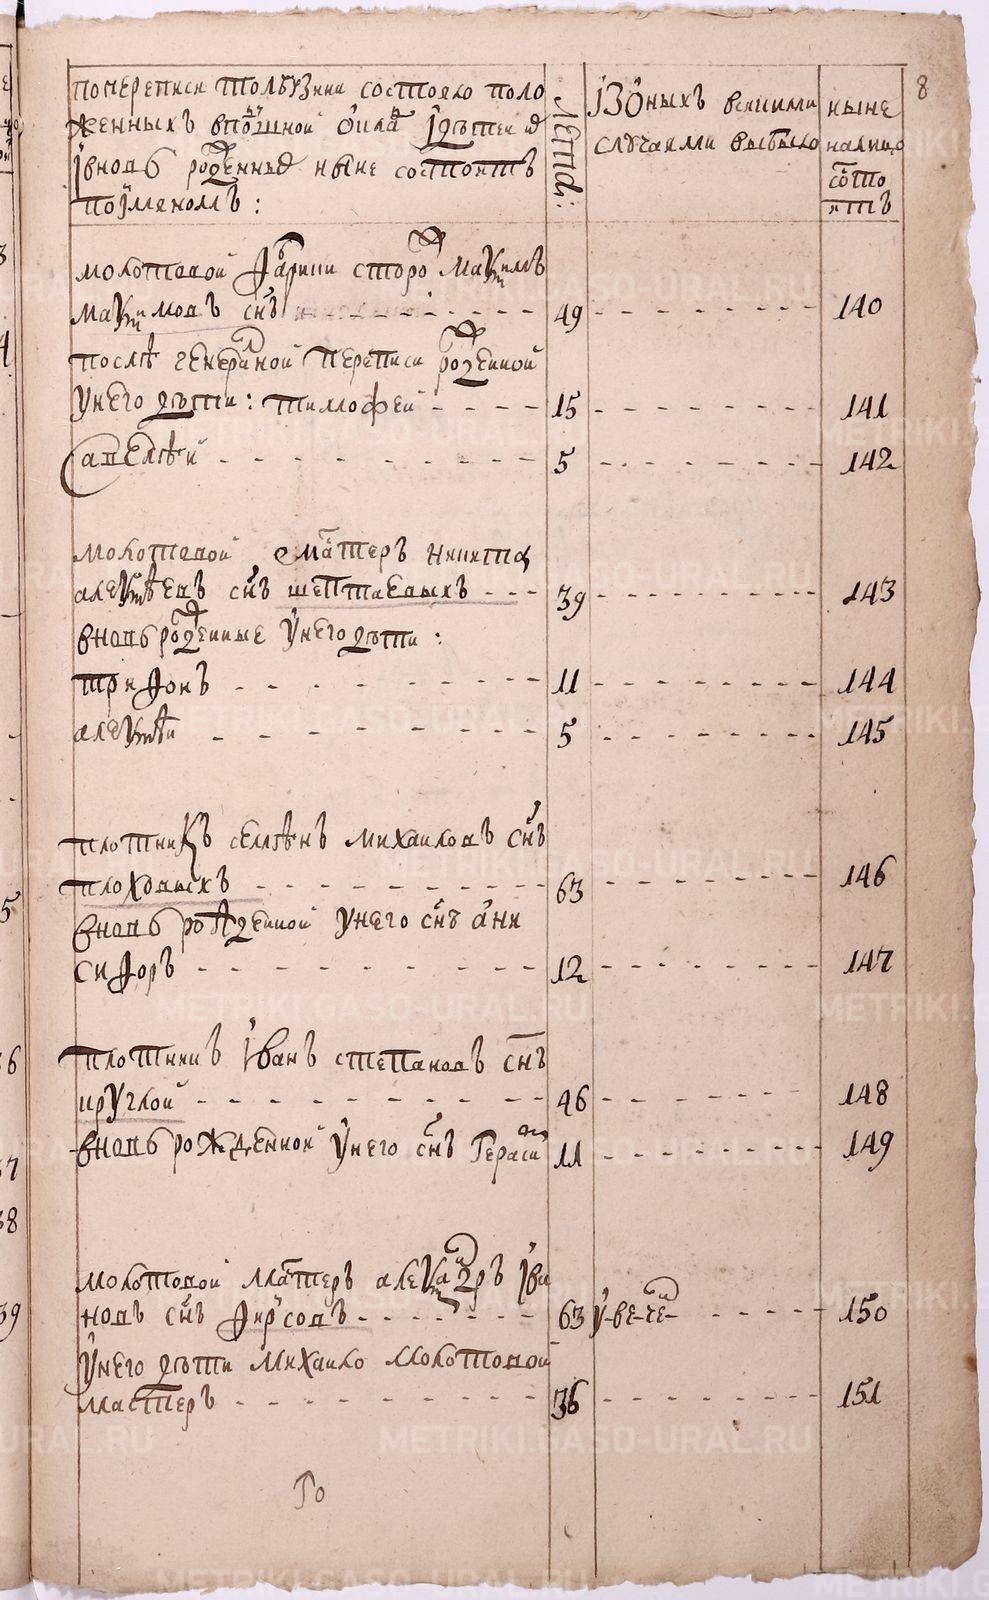 8
попереписи толъузкии состояло поло
женныхъ вподушной окладъ ідѣтеи и
івновь рожденные ныне состоитъ
поіменомъ:
лета:
ізоныхъ всякими
случаями выбыло
ныне
налицо
состо
итъ
молотовой фабрики сторож Максимъ
Максимовъ снъ 49 140
послѣ генералной переписи рожденной
унего дѣти: тимофеи 15 141
савелѣи 5 142
молотовой мастеръ никита
алексѣевъ снъ шептаевыхъ 39 143
вновь рожденные унего дѣти:
трифонъ 11 144
алексѣи 5 145
плотникъ семѣнъ михаиловъ снъ
плоховыхъ 63 146
вновь рожденной унего снъ ани
сифоръ 12 147
плотникъ іванъ степановъ снъ
круглой 46 148
вновь рожденной унего снъ Герасим 11 149
молотовой мастеръ александръ іва
новъ снъ фирсовъ 63 увечен 150
унего дѣти михаило молотовой
мастеръ 36 151
METRIKI.GASO-URAL.RU